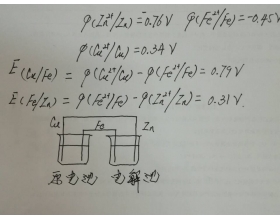 φ(Zn²⁺/Zn)=-0.76V φ(Fe²⁺/Fe)=-0.45V
φ(Cu²⁺/Cu)=0.34V
E(Cu/Fe)=φ(Cu²⁺/Cu)-φ(Fe²⁺/Fe)=0.79V
E(Fe/Zn)=φ(Fe²⁺/Fe)-φ(Zn²⁺/Zn)=0.31V.
Cu Fe Zn
原电池 电解池